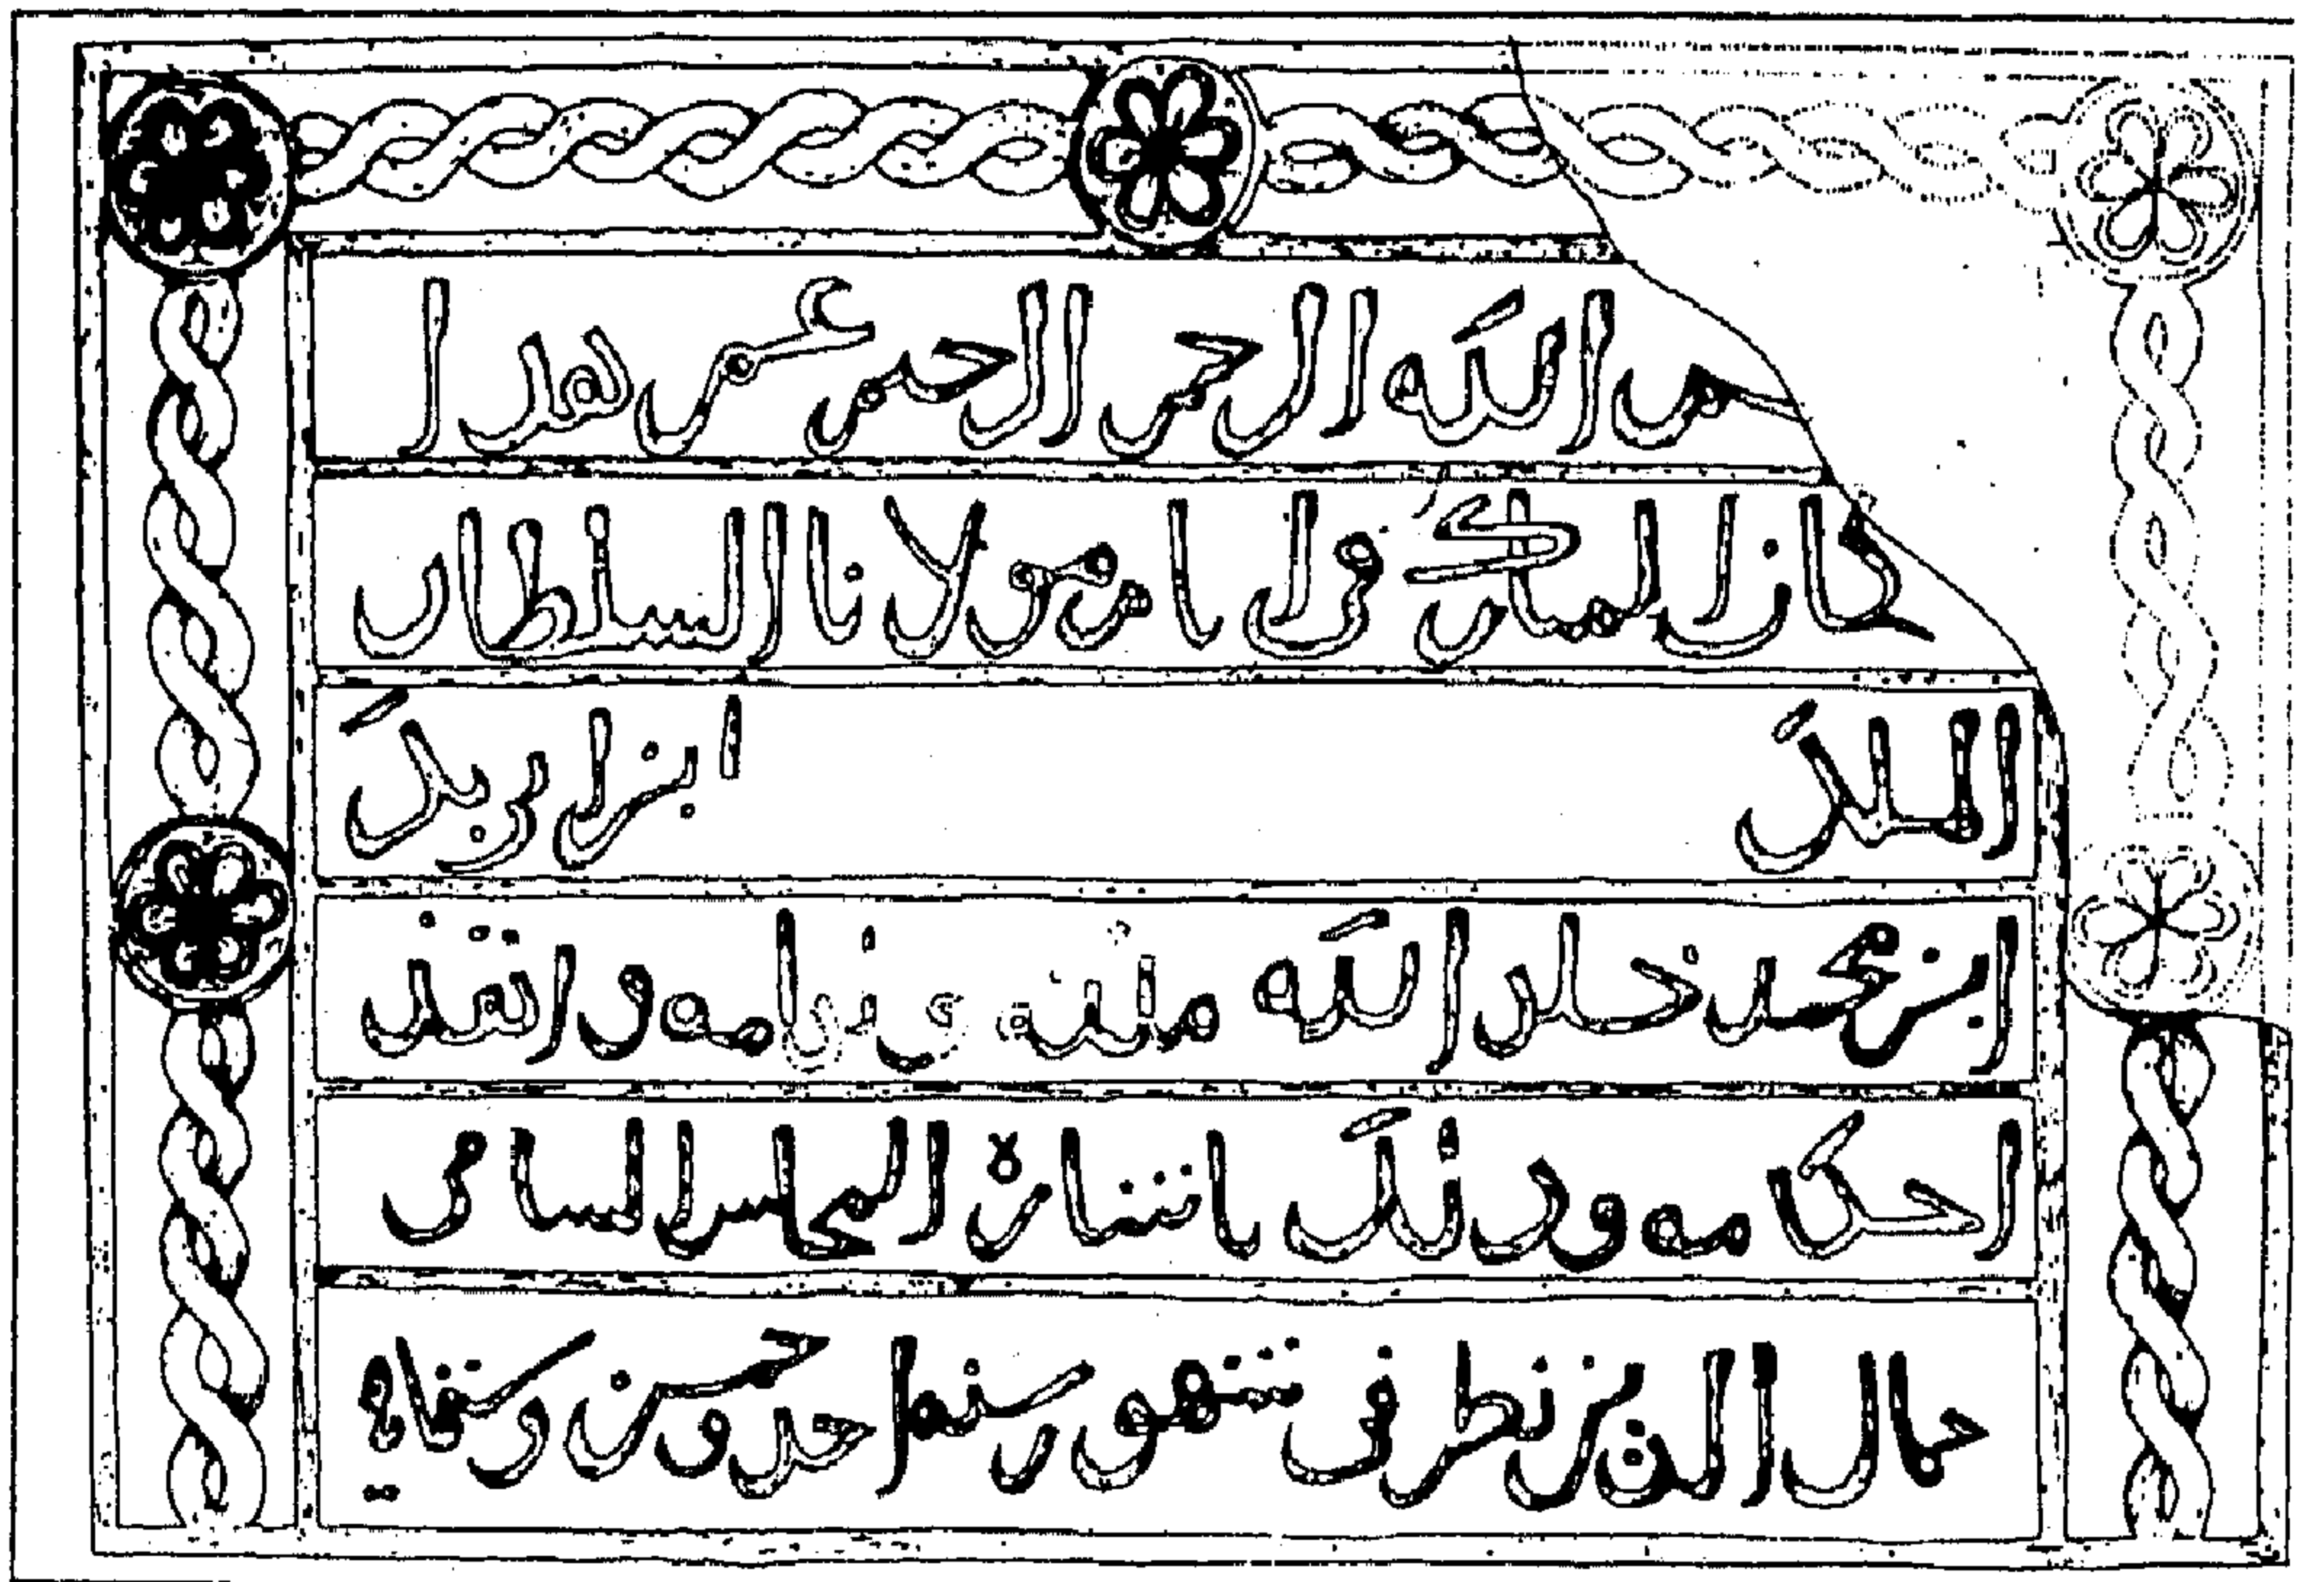 م الله الرحمن الرحيم عمر هذا ا
خان المبارك في ايام مولانا السلطان
الملك
ابن محمد خلد الله ايامه وانفذ
احكامه وذلك باشارة المجلس السامي
جمال الدين في شهور سنة احد وخمسين وستمايه